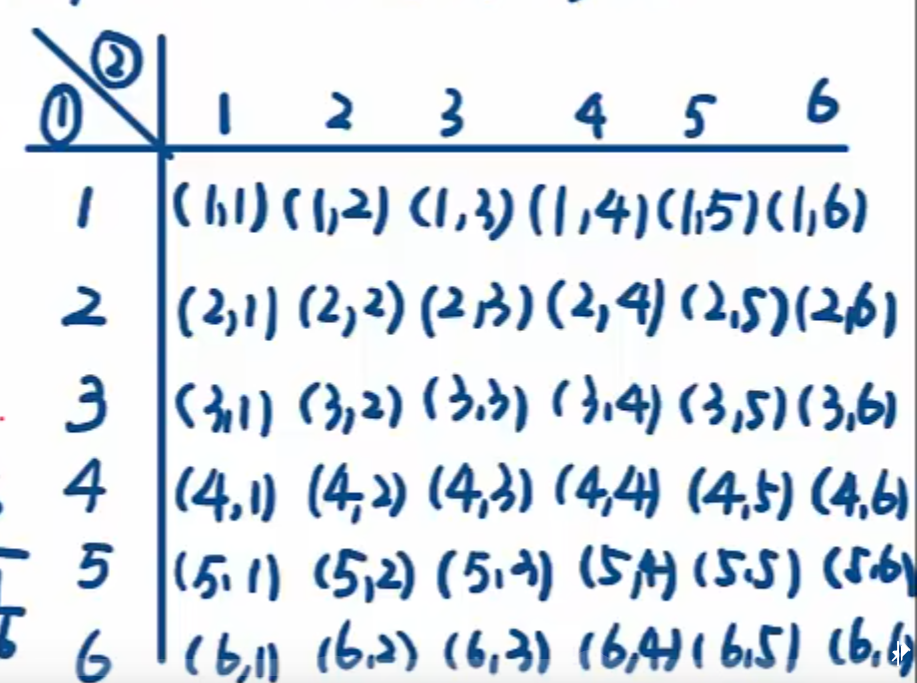 ②
① 1 2 3 4 5 6
1 (1,1) (1,2) (1,3) (1,4) (1,5) (1,6)
2 (2,1) (2,2) (2,3) (2,4) (2,5) (2,6)
3 (3,1) (3,2) (3,3) (3,4) (3,5) (3,6)
4 (4,1) (4,2) (4,3) (4,4) (4,5) (4,6)
5 (5,1) (5,2) (5,3) (5,4) (5,5) (5,6)
6 (6,1) (6,2) (6,3) (6,4) (6,5) (6,6)